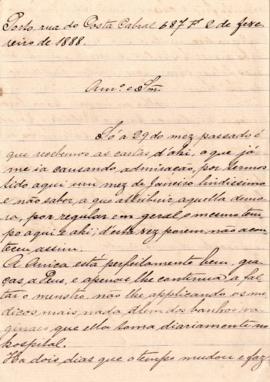 Porto, rua do Costa Cabral 687 1º 2 de feve
reiro de 1888.
Amº e Snr.
Só a 29 do mez passado é
que recebemos as cartas d'ahi, o que já
me ia causando admiração, por termos
tido aqui um mez de Janeiro lindissimo
e não saber a que attribuir aquella demo
ra, por regular em geral o mesmo tem
po aqui e ahi; d'esta vez porem não acon
teceu assim.
A Anica está perfeitamente bem, gra
ças a Deus, e apenas lhe continua a fal
tar o menstro, não lhe applicando os me
dicos mais nada alem de banhos va
ginaes que ella toma diariamente no
hospital.
Ha dois dias que o tempo mudou e faz